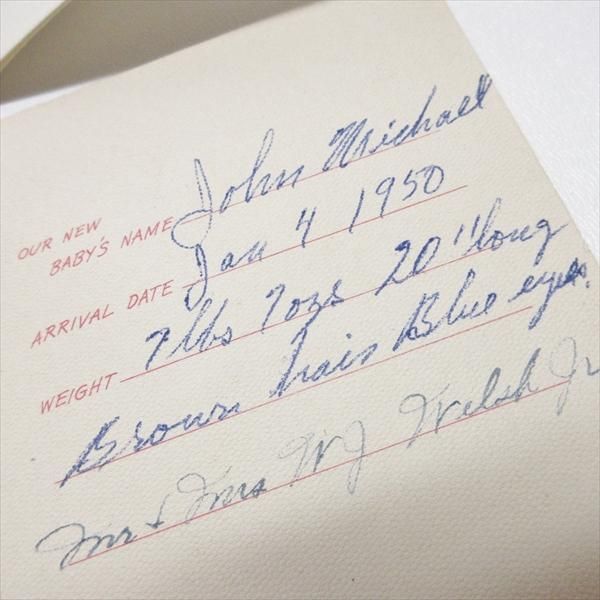 OUR NEW
BABY'S NAME John Michael
ARRIVAL DATE Jan 4 1950
WEIGHT 7 lbs 7 ozs 20" long
Brown hair Blue eyes.
Mr + Mrs W J Welsh Jr